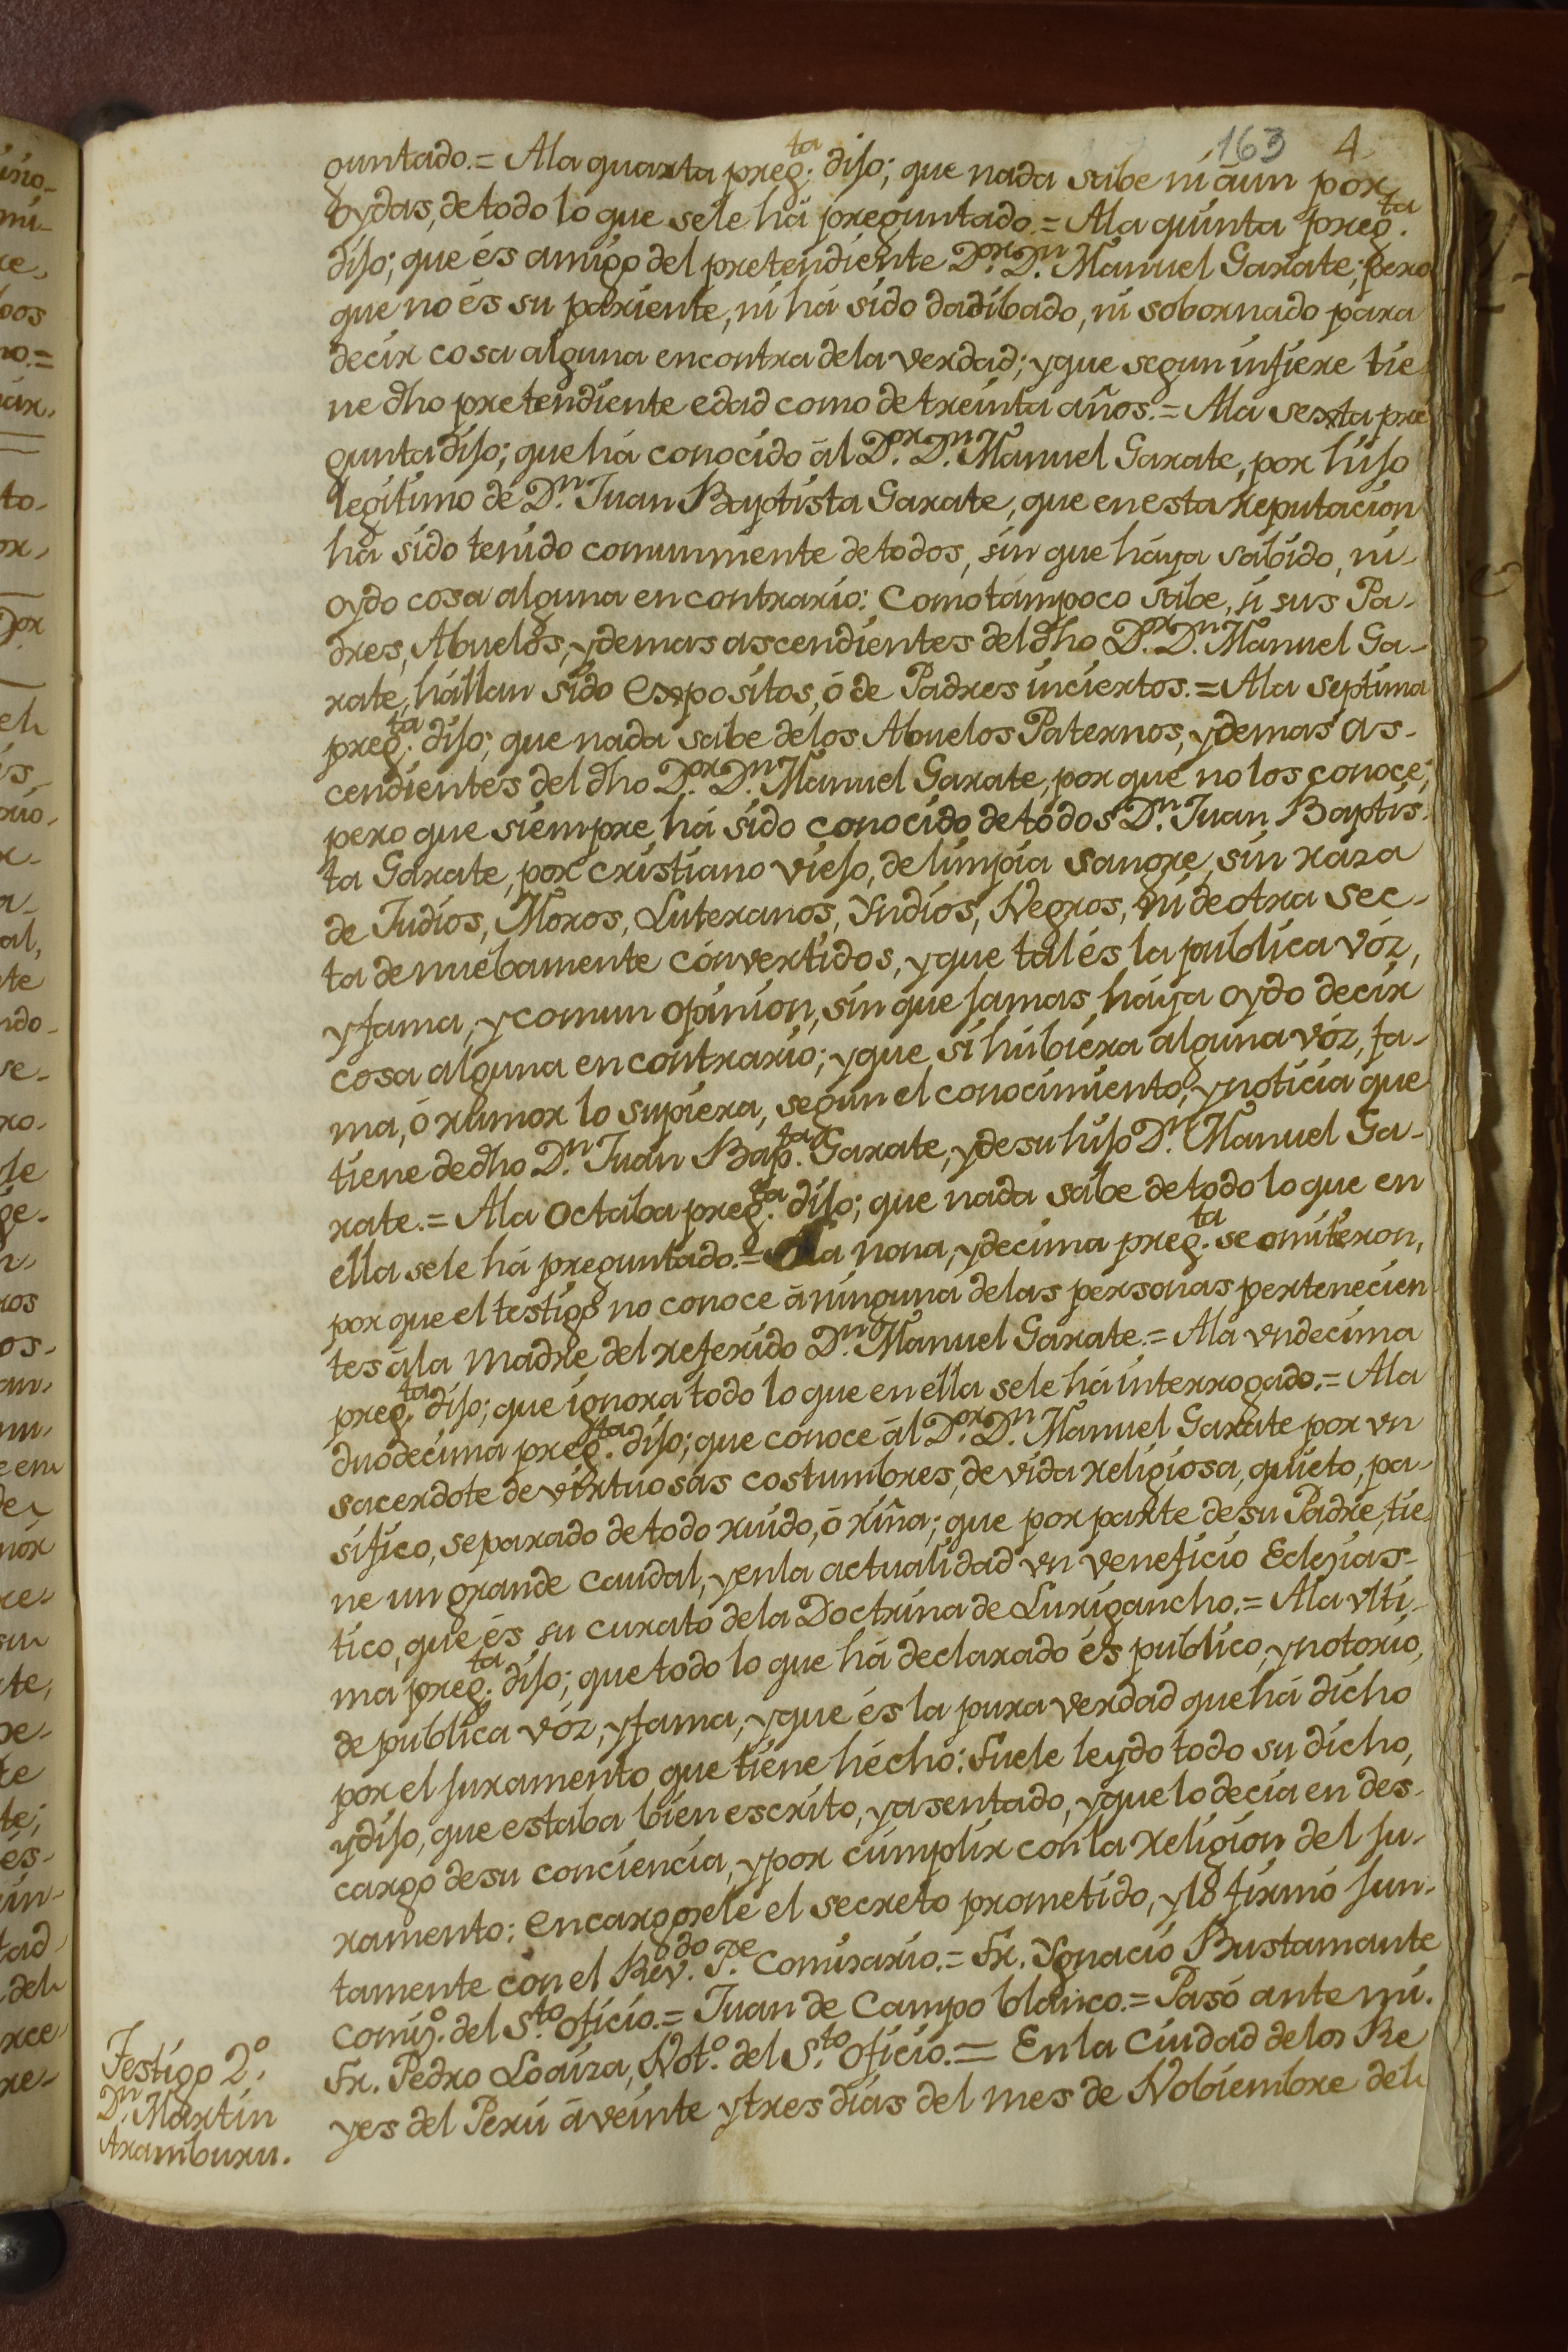 163 4
guntado.= Ala quarta preg.ta dijo; que nada sabe ni aun por
oydas, de todo lo que sele há preguntado.= Ala quinta preg.ta
dijo; que és amigo del pretendiente D.or D.n Manuel Garate; pero
que no és su pariente, ni há sido dadibado, ni sobornado para
decir cosa alguna encontra dela verdad; y que segun infiere tie
ne dho pretendiente edad como de treinta años.= Ala sexta pre
gunta dijo; que há conocido ál D.or D.n Manuel Garate, por hijo
legitimo de D.n Juan Baptista Garate, que en esta reputacion
há sido tenido comunmente de todos, sin que háya sabido, ni-
oydo cosa alguna en contrario: Como tampoco sabe, si sus Pa-
dres, Abuelos, y demas ascendientes del dho D.or D.n Manuel Ga-
rate, hállan sido Expositos, ó de Padres inciertos.= Ala septima
preg.ta dijo; que nada sabe delos Abuelos Paternos, y demas as-
cendientes del dho D.or D.n Manuel Garate, por que no los conoce;
pero que siempre há sido conocido de todos D.n Juan Baptis-
ta Garate, por cristiano viejo, de limpia sangre, sin raza
de Judios, Moros, Luteranos, Yndios, Negros, ni de otra sec-
ta de nuebamente convertidos, y que tal és la publica vóz,
y fama, y comun opinion, sin que jamas háya oydo decir
cosa alguna en contrario; y que si húbiera alguna vóz, fa-
ma, ó rumor lo supiera, segun el conocimiento, y noticia que
tiene de dho D.n Juan Bap.ta Garate, y de su hijo D.n Manuel Ga-
rate.= Ala Octaba preg.ta dijo; que nada sabe de todo lo que en
ella sele há preguntado.= Ala nona, y decima preg.ta se omiteron,
por que el testigo no conoce á ninguna delas personas pertenecien
tes ála Madre del referido D.n Manuel Garate.= Ala vndecima
preg.ta dijo; que ignora todo lo que en ella sele há interrogado.= Ala
duodecima preg.ta dijo; que conoce ál D.or D.n Manuel Garate por vn
sacerdote de virtuosas costumbres, de vida religiosa, quieto, pa-
sifico, separado de todo ruido, ó riña; que por parte de su Padre, tie
ne un grande caudal, y en la actualidad vn veneficio Eclesias-
tico, que és su curato dela Doctrina de Lurigancho.= Ala vlti-
ma preg.ta dijo; que todo lo que há declarado és publico, y notorio,
de publica vóz, y fama, y que és la pura verdad que há dicho
por el juramento que tiene hécho: Fuele leydo todo su dicho,
y dijo, que estaba bien escrito, y asentado, y que lo decia en des-
cargo de su conciencia, y por cumplir con la religion del ju-
ramento: encargosele el secreto prometido, y lo firmó jun-
tamente con el Rev.do P.e Comisario.= Fr. Ygnacio Bustamante
Comis.o del S.to Oficio.= Juan de Campo blanco.= Pasó ante mi.
Fr. Pedro Loaiza, Not.o del S.to Oficio.= En la Ciudad delos Re
yes del Perú á veinte y tres dias del mes de Nobiembre del
Testigo 2.o
D.n Martin
Aramburu.